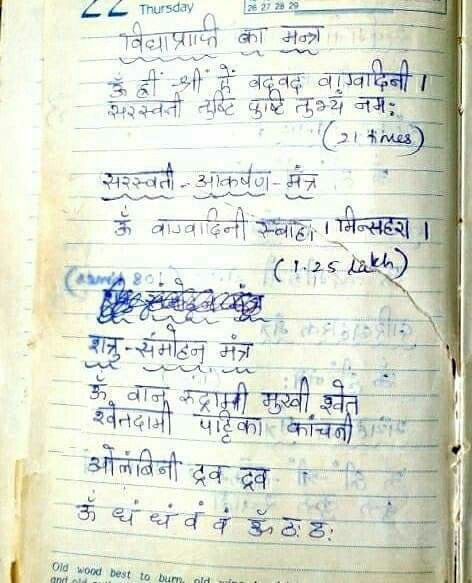 22 Thursday
26 27 28 29
विद्याप्राप्ति का मन्त्र
ॐ ह्रीं श्रीं ऐं वदवद वाग्वादिनी ।
सरस्वती तुष्टि पुष्टि तुभ्यं नमः
(21 times)
सरस्वती - आकर्षण - मंत्र
ॐ वाग्वादिनी स्वाहा । मिन्सहरा ।
(1.25 lakh)
शत्रु - संमोहन मंत्र
ॐ वान मुखी श्वेत
श्वेतदामी पाट्टिका कांचनी
ओलंबिनी द्रव द्रव
ॐ धं धं वं वं ॐ ठः ठः
Old wood best to burn, old
and old